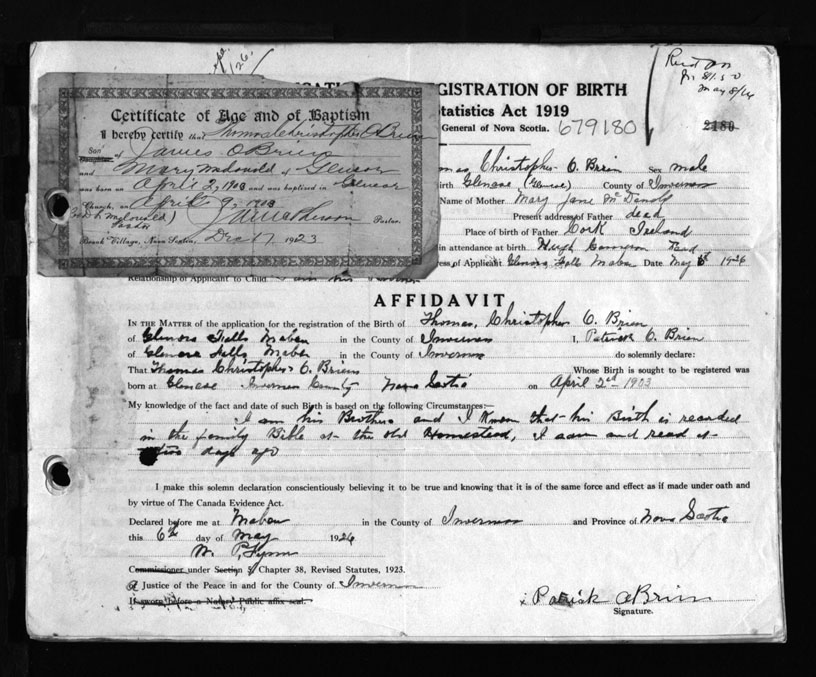 Certificate of Age and of Baptism
I hereby certify that Thomas Christopher O'Brien
Son of James O'Brien
and Mary Macdonald of Glencoe
was born on April 2, 1903 and was baptised in Glencoe
Church, on April 9, 1903
Pastor.
Beach Village, Nova Scotia, Dec 17 1923
REGISTRATION OF BIRTH
Statistics Act 1919
General of Nova Scotia. 679180
2180
May 8/26
Christopher O. Brien Sex male
Birth Glencoe (Glencoe) County of Inverness
Name of Mother Mary Jane McDonald
Present address of Father dead
Place of birth of Father Cork Ireland
in attendance at birth Hugh Cameron
of Applicant Glenora Falls Mabou Date May 6th 1926
Relationship of Applicant to Child I am his Brother
AFFIDAVIT
IN THE MATTER of the application for the registration of the Birth of Thomas, Christopher O. Brien
of Glenora Falls Mabou in the County of Inverness I, Patrick O. Brien
of Glenora Falls, Mabou in the County of Inverness do solemnly declare:
That Thomas Christopher O. Brien Whose Birth is sought to be registered was
born at Glencoe Inverness County Nova Scotia on April 2nd 1903
My knowledge of the fact and date of such Birth is based on the following Circumstances:—
I am his Brother and I Know that his Birth is recorded
in the family Bible at the old Homestead, I saw and read it
two days ago
I make this solemn declaration conscientiously believing it to be true and knowing that it is of the same force and effect as if made under oath and
by virtue of The Canada Evidence Act.
Declared before me at Mabou in the County of Inverness and Province of Nova Scotia
this 6th day of May 1926
Commissioner under Section 3, Chapter 38, Revised Statutes, 1923.
A Justice of the Peace in and for the County of Inverness
If sworn before a Notary Public affix seal.
x Patrick O Brien
Signature.